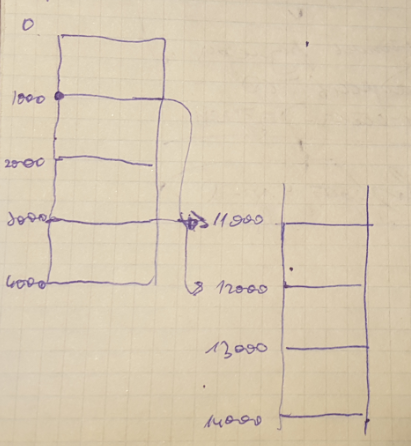 0
1000
2000
3000
11000
4000
12000
13000
14000